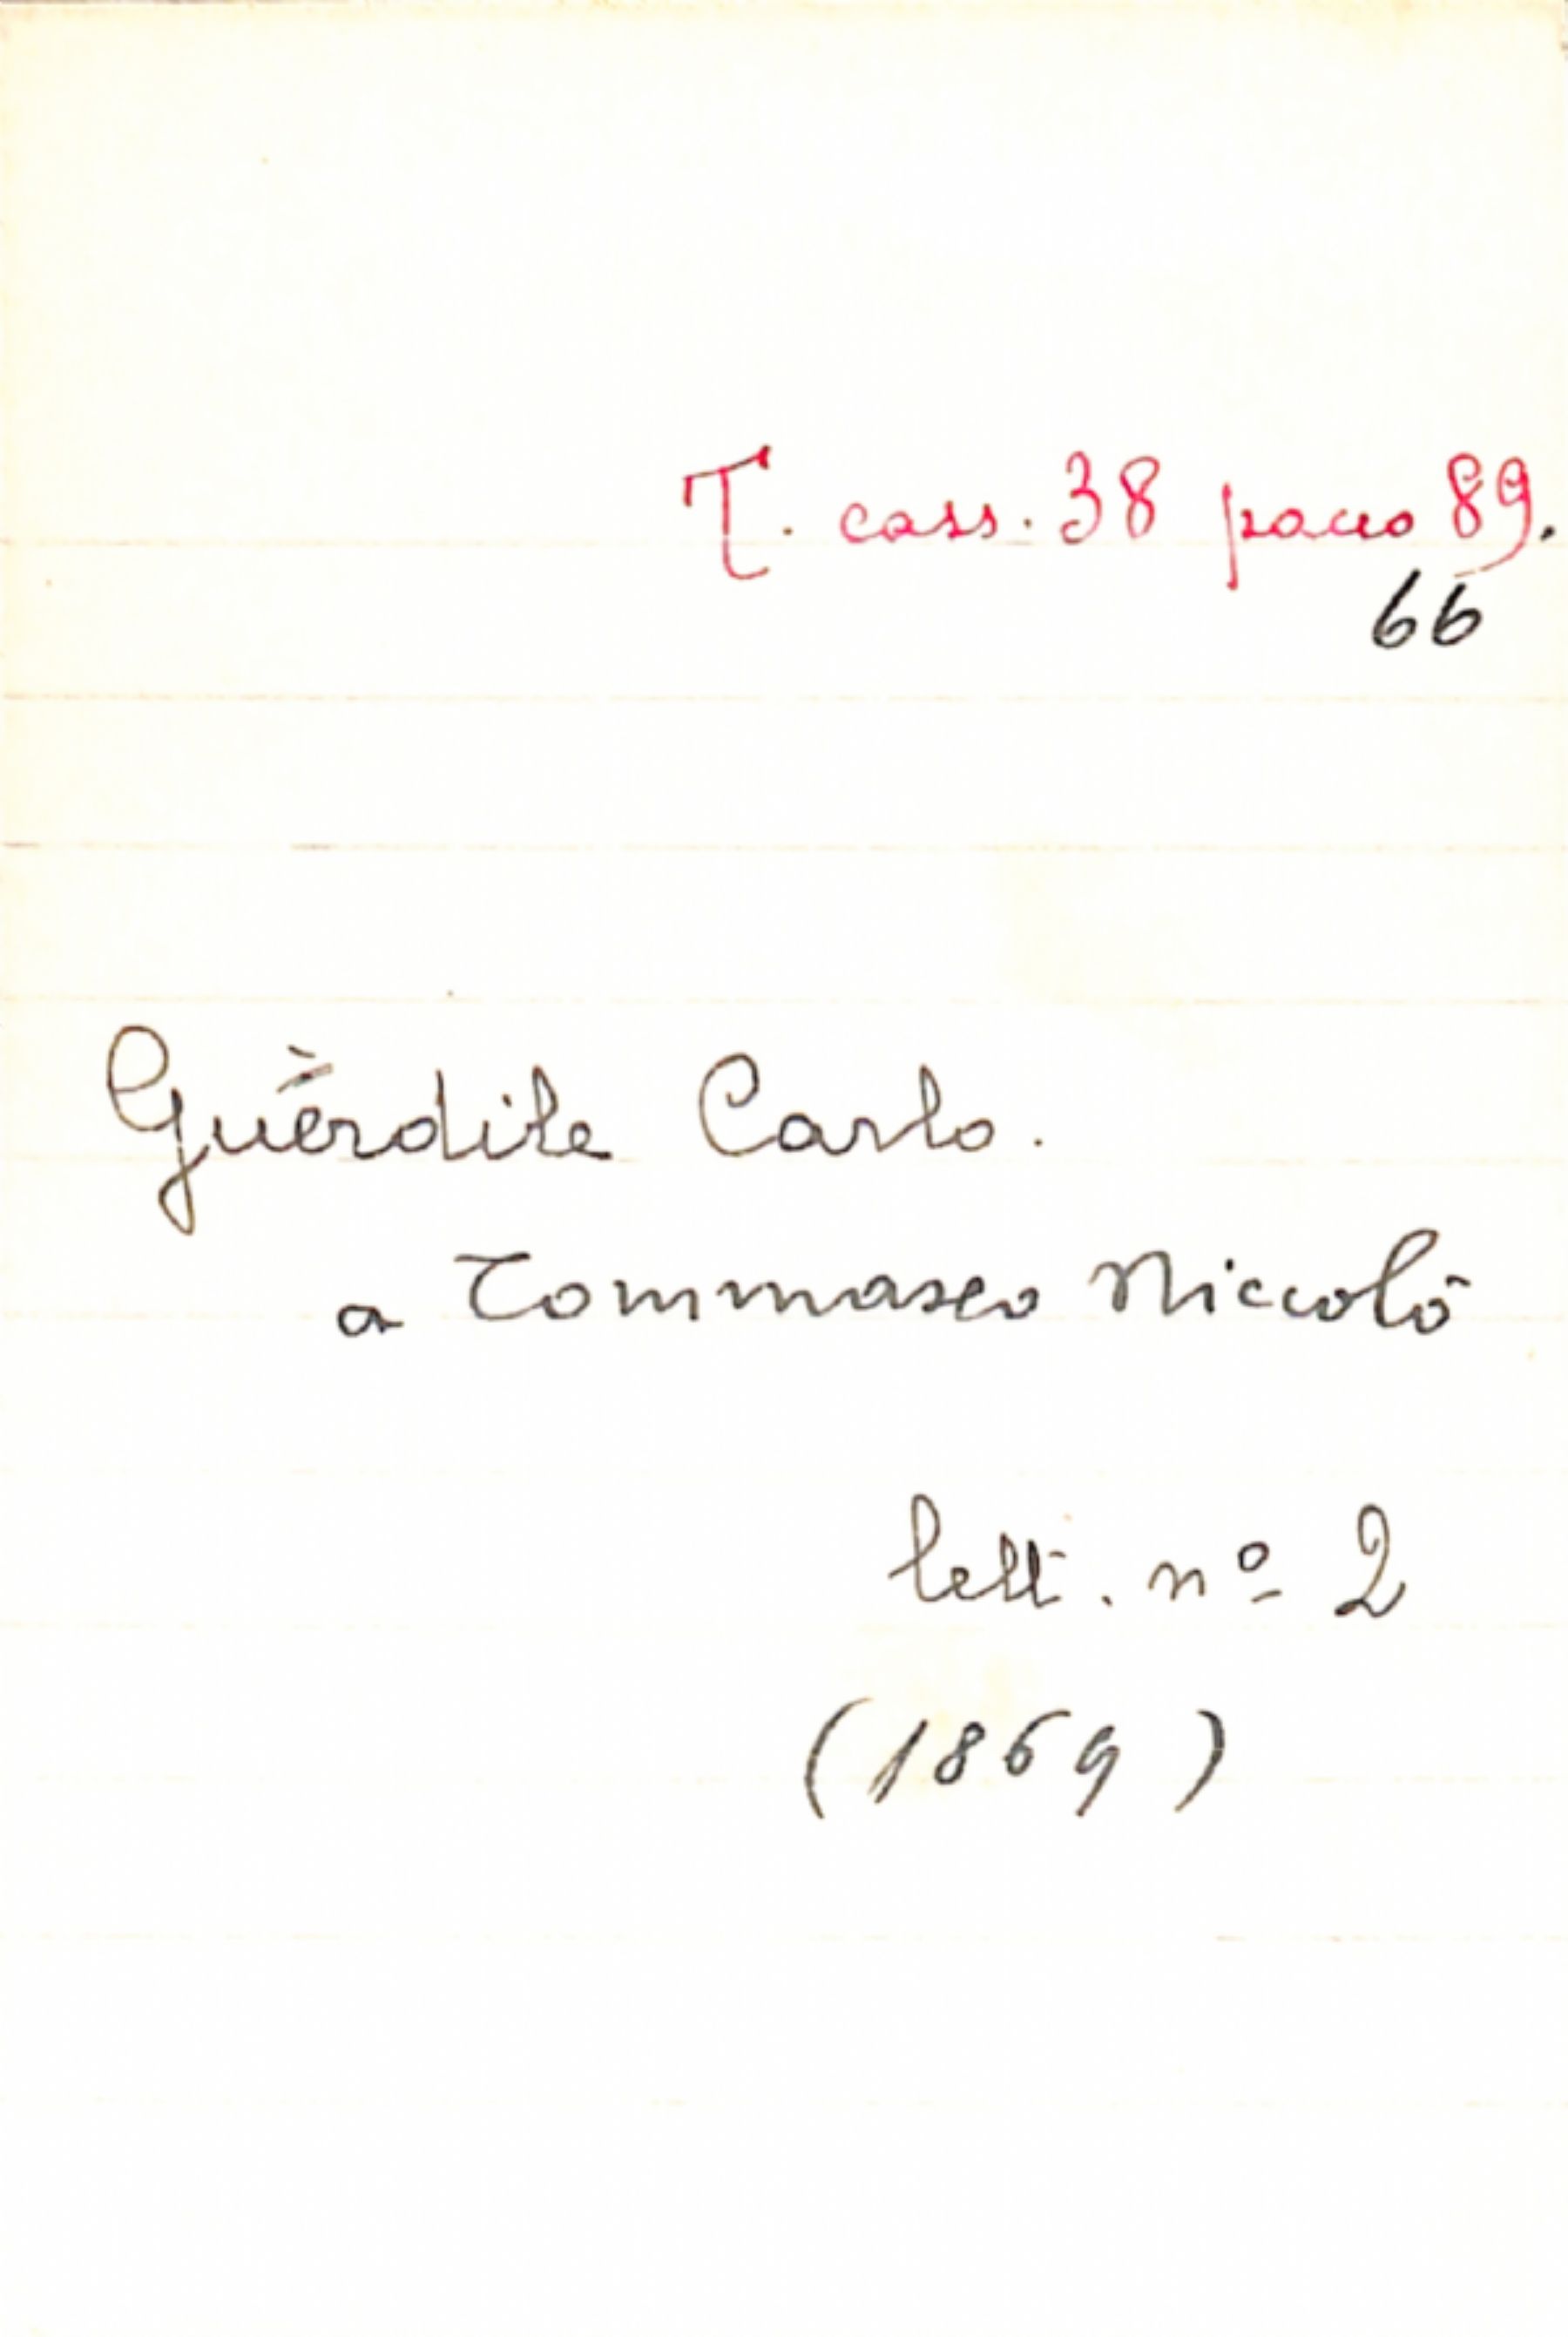 T. cass. 38 pacco 89.
66
Guèrdile Carlo.
a Tommaseo Niccolò
lett. nº 2
(1869)